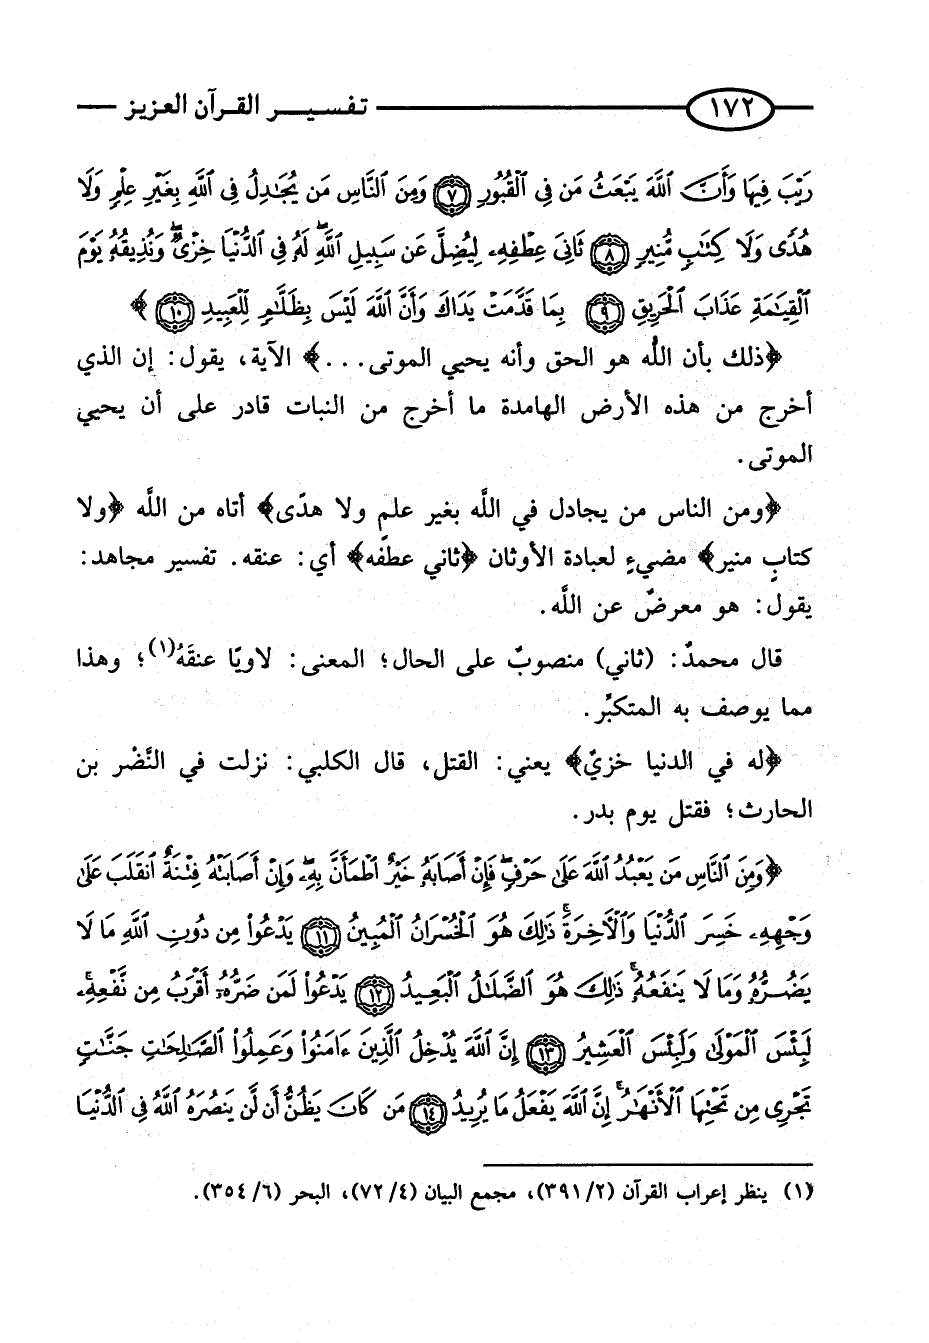 ١٧٢ تفسير القرآن العزيز
رَيْبَ فِيهَا وَأَنَّ ٱللَّهَ يَبْعَثُ مَن فِى ٱلْقُبُورِ ٧ وَمِنَ ٱلنَّاسِ مَن يُجَٰدِلُ فِى ٱللَّهِ بِغَيْرِ عِلْمٍ وَلَا
هُدًى وَلَا كِتَٰبٍ مُّنِيرٍ ٨ ثَانِىَ عِطْفِهِۦ لِيُضِلَّ عَن سَبِيلِ ٱللَّهِ ۖ لَهُۥ فِى ٱلدُّنْيَا خِزْىٌ ۖ وَنُذِيقُهُۥ يَوْمَ
ٱلْقِيَٰمَةِ عَذَابَ ٱلْحَرِيقِ ٩ ذَٰلِكَ بِمَا قَدَّمَتْ يَدَاكَ وَأَنَّ ٱللَّهَ لَيْسَ بِظَلَّٰمٍ لِّلْعَبِيدِ ١٠ ﴾
﴿ذلك بأن اللَّه هو الحق وأنه يحيي الموتى. . .﴾ الآية، يقول: إن الذي
أخرج من هذه الأرض الهامدة ما أخرج من النبات قادر على أن يحيي
الموتى.
﴿ومن الناس من يجادل في اللَّه بغير علمٍ ولا هدًى﴾ أتاه من اللَّه ﴿ولا
كتابٍ منير﴾ مضيءٍ لعبادة الأوثان ﴿ثاني عطفه﴾ أي: عنقه. تفسير مجاهد:
يقول: هو معرضٌ عن اللَّه.
قال محمدٌ: (ثاني) منصوبٌ على الحال؛ المعنى: لاويًا عنقَهُ(١)؛ وهذا
مما يوصف به المتكبِّر.
﴿له في الدنيا خزيٌ﴾ يعني: القتل، قال الكلبي: نزلت في النَّضْر بن
الحارث؛ فقتل يوم بدر.
﴿وَمِنَ ٱلنَّاسِ مَن يَعْبُدُ ٱللَّهَ عَلَىٰ حَرْفٍ ۖ فَإِنْ أَصَابَهُۥ خَيْرٌ ٱطْمَأَنَّ بِهِۦ ۖ وَإِنْ أَصَابَتْهُ فِتْنَةٌ ٱنقَلَبَ عَلَىٰ
وَجْهِهِۦ خَسِرَ ٱلدُّنْيَا وَٱلْءَاخِرَةَ ۚ ذَٰلِكَ هُوَ ٱلْخُسْرَانُ ٱلْمُبِينُ ١١ يَدْعُوا۟ مِن دُونِ ٱللَّهِ مَا لَا
يَضُرُّهُۥ وَمَا لَا يَنفَعُهُۥ ۚ ذَٰلِكَ هُوَ ٱلضَّلَٰلُ ٱلْبَعِيدُ ١٢ يَدْعُوا۟ لَمَن ضَرُّهُۥٓ أَقْرَبُ مِن نَّفْعِهِۦ ۚ
لَبِئْسَ ٱلْمَوْلَىٰ وَلَبِئْسَ ٱلْعَشِيرُ ١٣ إِنَّ ٱللَّهَ يُدْخِلُ ٱلَّذِينَ ءَامَنُوا۟ وَعَمِلُوا۟ ٱلصَّٰلِحَٰتِ جَنَّٰتٍ
تَجْرِى مِن تَحْتِهَا ٱلْأَنْهَٰرُ ۚ إِنَّ ٱللَّهَ يَفْعَلُ مَا يُرِيدُ ١٤ مَن كَانَ يَظُنُّ أَن لَّن يَنصُرَهُ ٱللَّهُ فِى ٱلدُّنْيَا
(١) ينظر إعراب القرآن (٢/ ٣٩١)، مجمع البيان (٤/ ٧٢)، البحر (٦/ ٣٥٤).